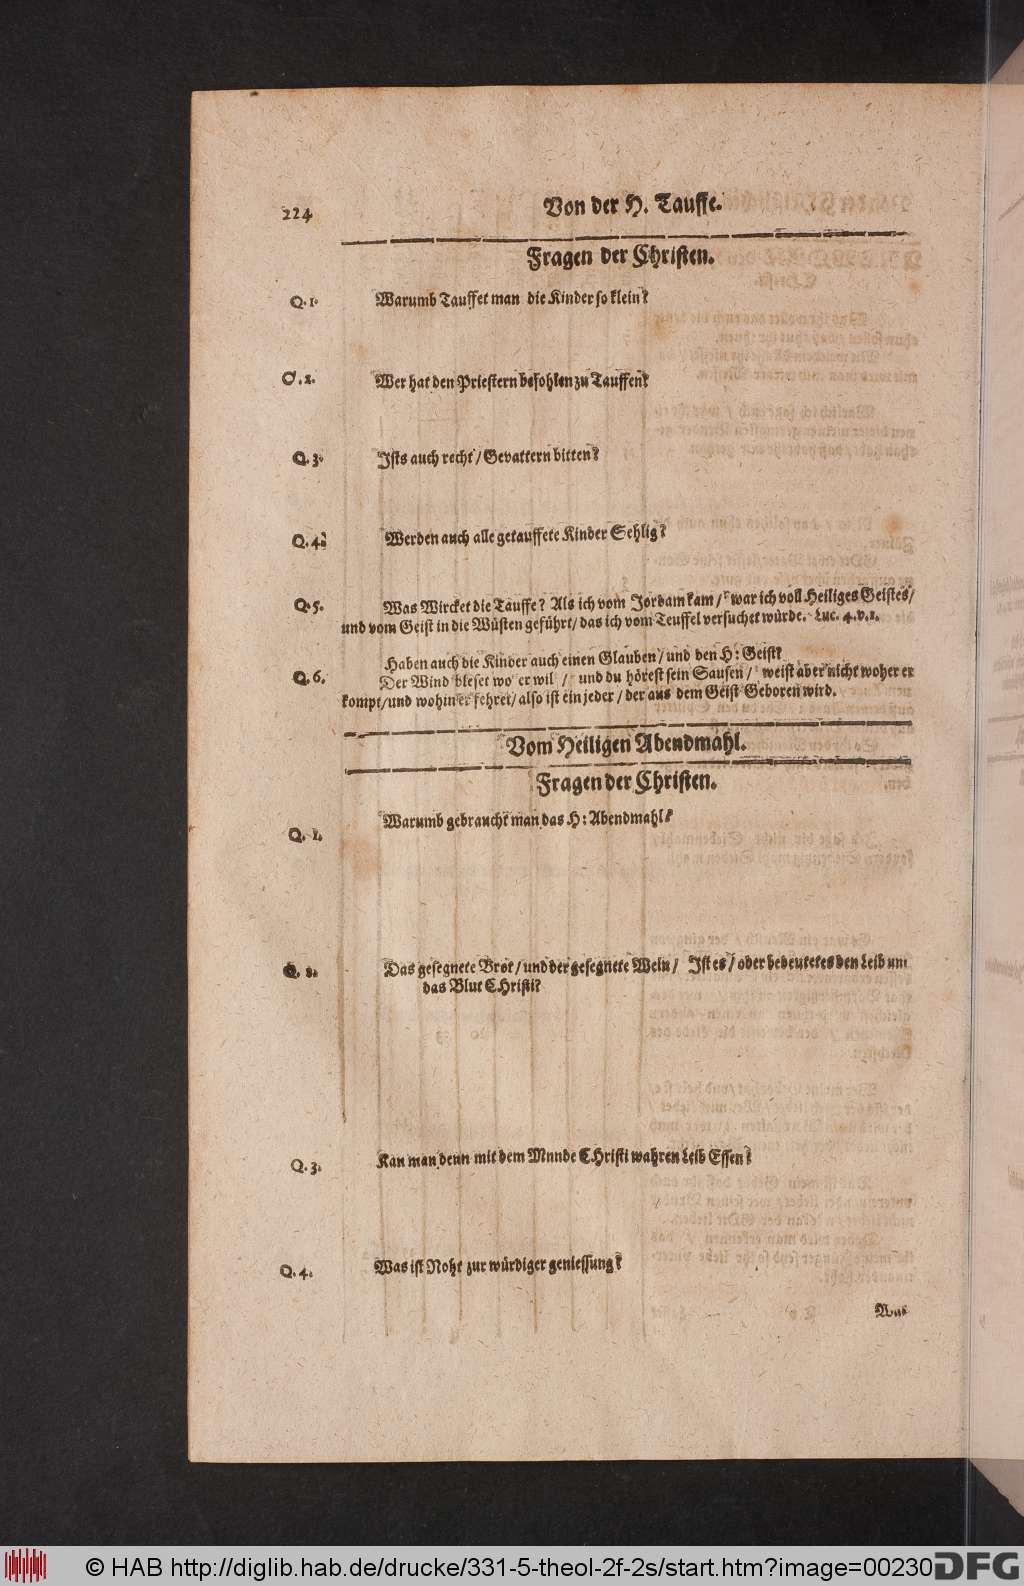 224
Von der H. Tauffe.
Fragen der Christen.
Q. 1. Warumb Tauffet man die Kinder so klein?
Q. 2. Wer hat den Priestern befohlen zu Tauffen?
Q. 3. Ists auch recht / Gevattern bitten?
Q. 4. Werden auch alle getauffete Kinder Sehlig?
Q. 5. Was Wircket die Tauffe? Als ich vom Jordam kam / war ich voll Heiliges Geistes /
und vom Geist in die Wüsten geführt / das ich vom Teuffel versuchet würde. Luc. 4. v. 1.
Haben auch die Kinder auch einen Glauben / und den H: Geist?
Q. 6. Der Wind bleset wo er wil / und du hörest sein Sausen / weist aber nicht woher er
kompt / und wohin er fehret / also ist ein jeder / der aus dem Geist Geboren wird.
Vom Heiligen Abendmahl.
Fragen der Christen.
Q. 1. Warumb gebraucht man das H: Abendmahl?
Q. 2. Das gesegnete Brot / und der gesegnete Wein / Ist es / oder bedeutet es den Leib un
das Blut CHristi?
Q. 3. Kan man denn mit dem Munde CHristi wahren Leib Essen?
Q. 4. Was ist Noht zur würdiger geniessung?
© HAB http://diglib.hab.de/drucke/331-5-theol-2f-2s/start.htm?image=00230
DFG